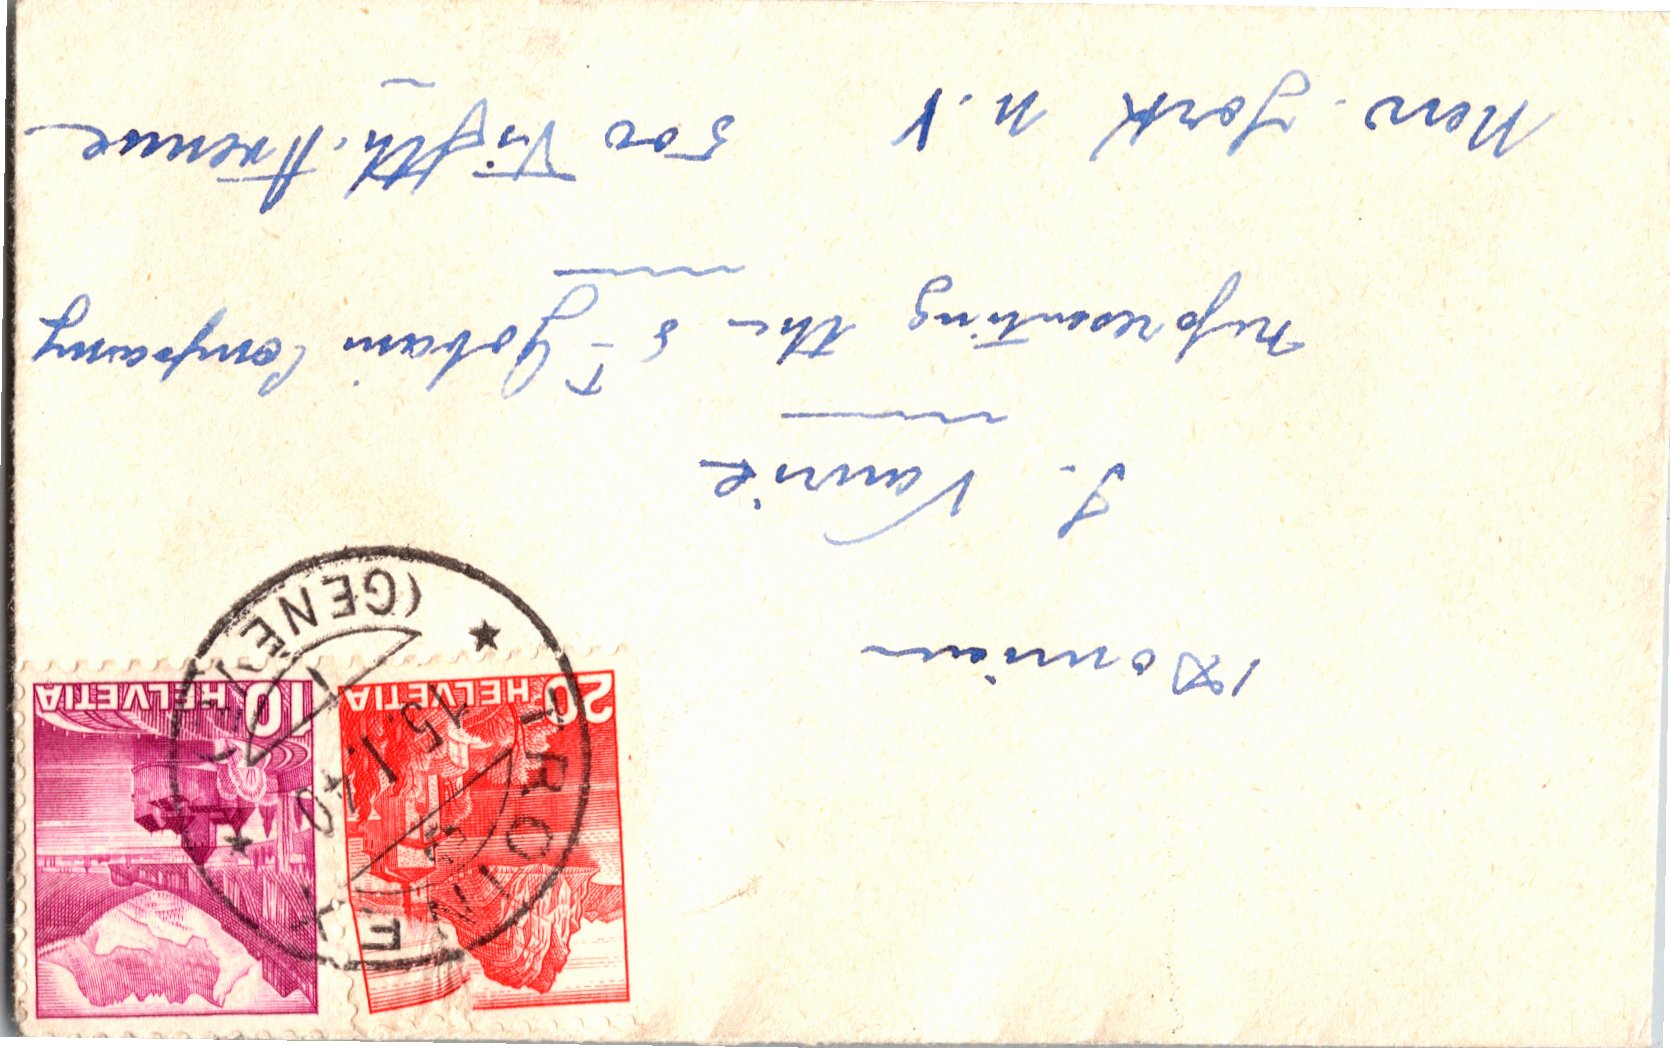 20 HELVETIA
10 HELVETIA
TROINEX
15.I.40
(GENÈVE)
J. Vaurie
representing the St Gobain Company
New. York N.Y 500 Fifth. Avenue